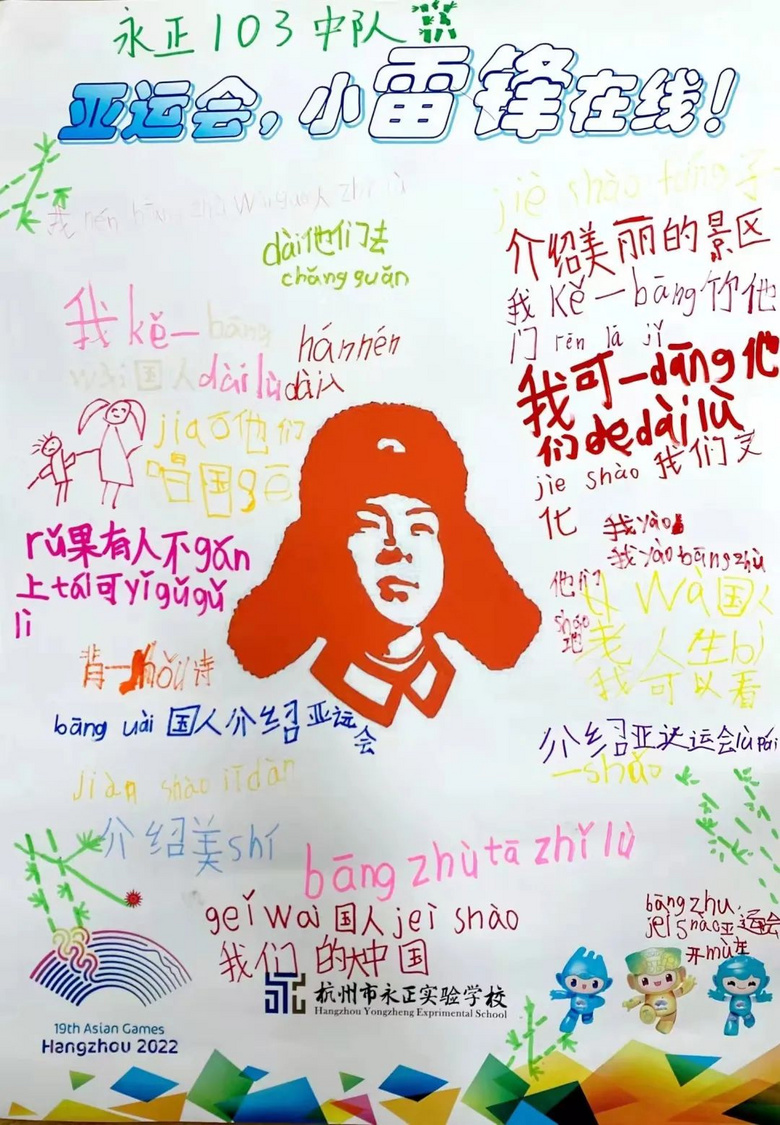 永正103中队
亚运会，小雷锋在线！
dài他们去
chǎng guǎn
我kě一bāng
wài国人dài lù
hán hén
dài入
jiāo他们
唱国gē
rǔ果有人不gǎn
上tái可yǐgǔgǔ
lì
背一shǒu诗
bāng uài 国人介绍亚运
会
jiàn shào jīdàn
介绍美shí
jiè shào
介绍美丽的景区
我kě一bāng你他
们 rēn lā jī
我可一dāng他
们de dài lù
jie shào 我们文
化
我yào
我yào bāng zhù
他们
老人生bì
我可以看
介绍亚运会lù pái
一shǎo
bāng zhù tā zhǐ lù
geǐ wai 国人 jei shào
我们的大中国
bāng zhu
jei shào亚运会
开mù
19th Asian Games
Hangzhou 2022
杭州市永正实验学校
Hangzhou Yongzheng Exprimental School